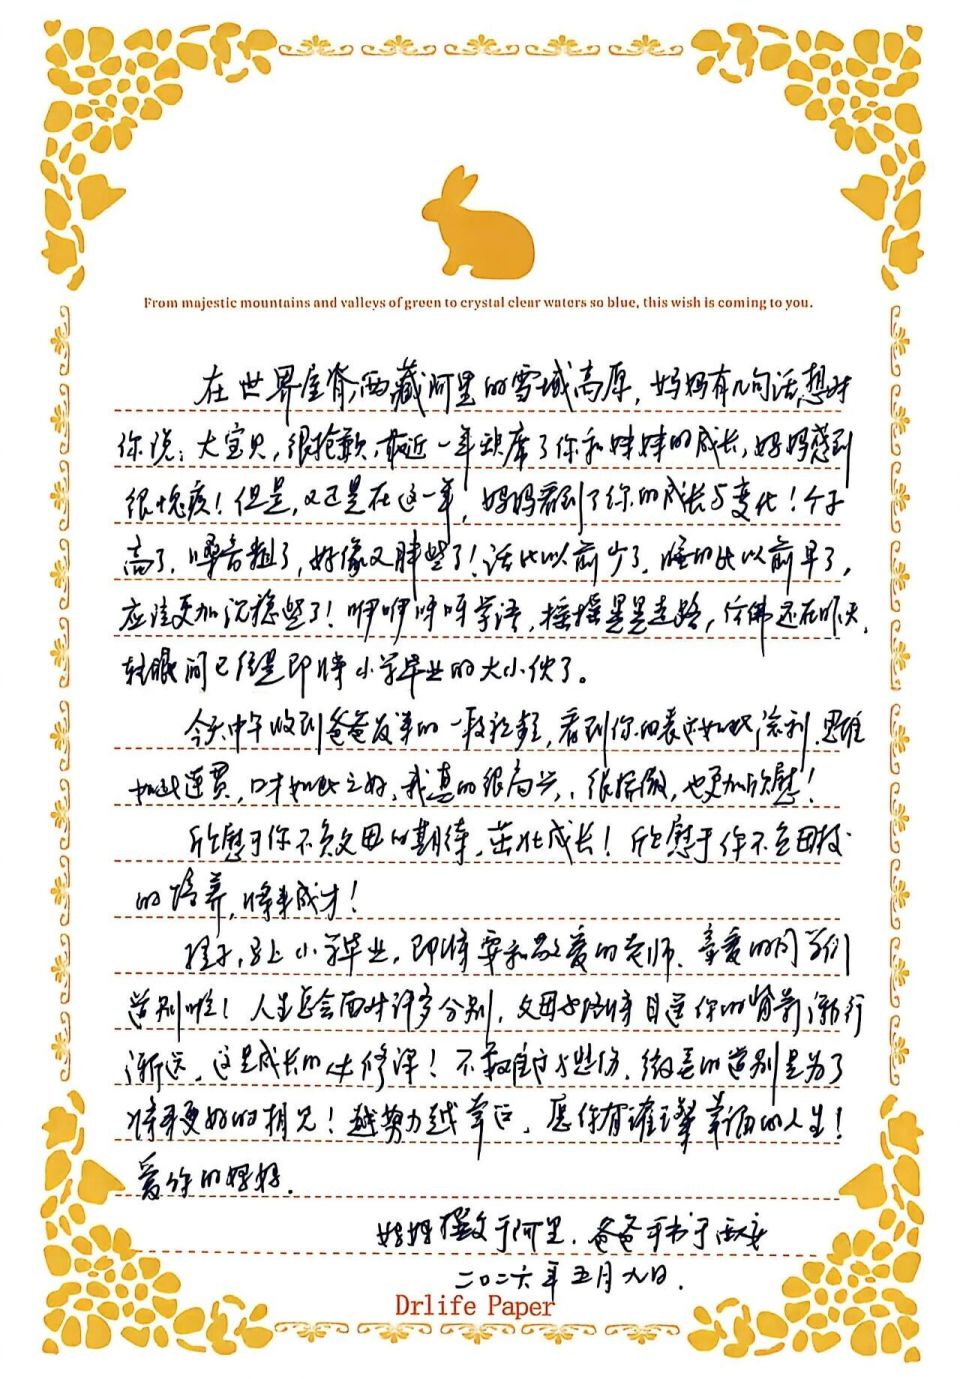 From majestic mountains and valleys of green to crystal clear waters so blue, this wish is coming to you.
在世界屋脊,西藏阿里的雪域高原，妈妈有几句话想对
你说：大宝贝，很抱歉，最近一年缺席了你和妹妹的成长，妈妈感到
很愧疚！但是，又正是在这一年，妈妈看到了你的成长与变化！个子
高了，嗓音粗了，好像又胖些了！话比以前少了，睡的比以前早了，
应该更加沉稳些了！咿咿呀呀学语，摇摇晃晃走路，仿佛还在昨天，
转眼间已经是即将小学毕业的大小伙了。
今天中午收到爸爸发来的一段视频，看到你的表达如此流利，思维
如此连贯，口才如此之好，我真的很高兴，很骄傲，也更加欣慰！
欣慰于你不负父母的期待，茁壮成长！欣慰于你不负母校
的培养，将来成才！
孩子，马上小学毕业，即将要和敬爱的老师、亲爱的同学们
道别啦！人生总会面对许多分别，父母也终将目送你的背影渐行
渐远，这是成长的必修课！不敢自过与悲伤，微笑的道别是为了
将来更好的相见！越努力越幸运，愿你拥有璀璨幸福的人生！
爱你的妈妈。
妈妈撰文于阿里，爸爸手书于西安
二〇二六年五月九日．
Drlife Paper